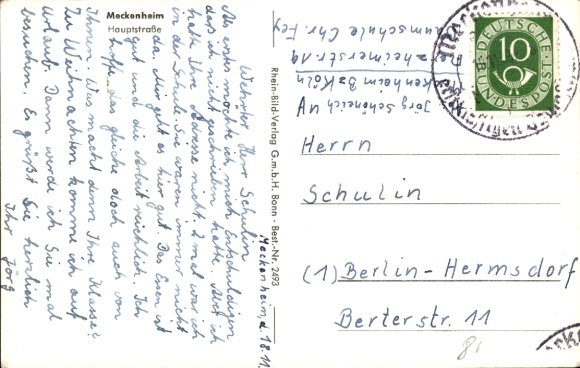 Meckenheim
Hauptstraße
Meckenheim, d. 18.11.
Wehrter Herr Schulin
Als erstes möchte ich mich Entschuldigen
das ich nicht geschrieben hatte. Aber ich
hatte Ihre Adresse nicht. 2 mal war ich
in der Schule. Sie waren immer nicht
da. Mir geht es hier gut. Das Essen ist
gut und die Arbeit reichlich. Ich
hoffe das gleiche doch auch von
Ihnen. Was macht denn Ihre Klasse?
Zu Weihnachten komme ich auf
Urlaub. Dann werde ich Sie mal
besuchen. Es grüßt Sie herzlich
Ihr Jörg
Rhein-Bild-Verlag G.m.b.H. Bonn - Best.-Nr. 2493
Jörg Schöneich
Meckenheim Bz Köln
heimerstr. 19
Baumschule Chr. Fey
DEUTSCHE
10
BUNDESPOST
Herrn
Schulin
(1) Berlin-Hermsdorf
Berterstr. 11